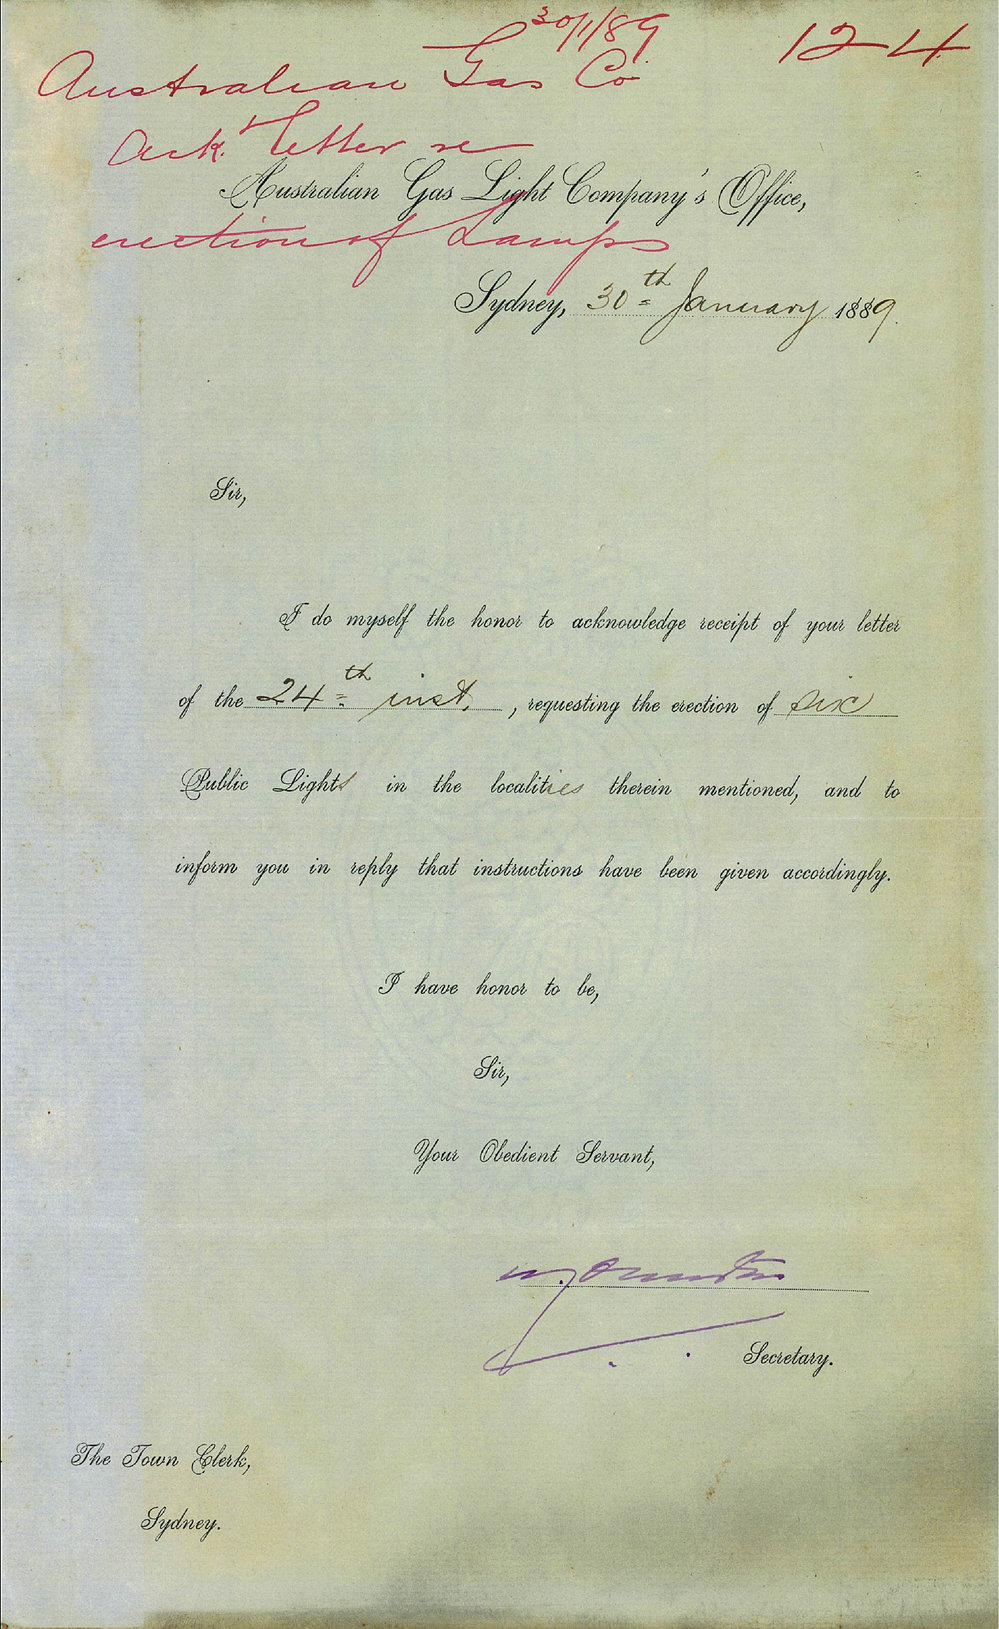 30/1/89
124
Australian Gas Co
Ack.t letter re
Australian Gas Light Company's Office,
erection of Lamps
Sydney, 30th January 1889.
Sir,
I do myself the honor to acknowledge receipt of your letter
of the 24th inst, , requesting the erection of six
Public Lights in the localities therein mentioned, and to
inform you in reply that instructions have been given accordingly.
I have honor to be,
Sir,
Your Obedient Servant,
Secretary.
The Town Clerk,
Sydney.